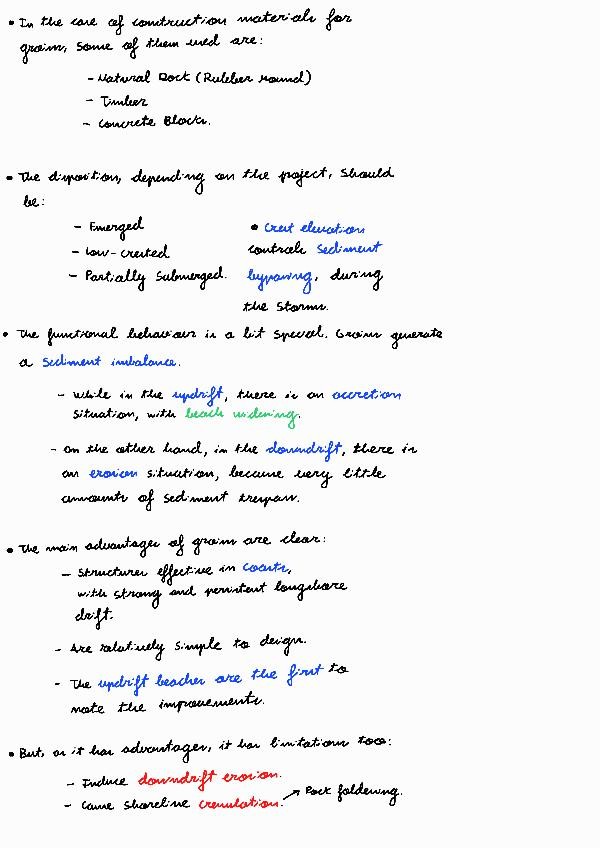 • In the case of construction materials for
groins, some of them used are:
- Natural Rock (Rubber mound)
- Timber
- Concrete Blocks.
• The disposition, depending on the project, should
be:
- Emerged
- Low-crested
- Partially Submerged.
• Crest elevation
controls sediment
bypassing, during
the storms.
• The functional behaviour is a bit special. Groins generate
a sediment imbalance.
- while in the updrift, there is an accretion
situation, with beach widening.
- on the other hand, in the downdrift, there is
an erosion situation, because very little
amounts of sediment trespass.
• The main advantages of groins are clear:
- Structures effective in coasts,
with strong and persistent longshore
drift.
- Are relatively simple to design.
- The updrift beaches are the first to
note the improvements.
• But, as it has advantages, it has limitations too:
- Induce downdrift erosion.
- Cause shoreline crenulation. → foldening.